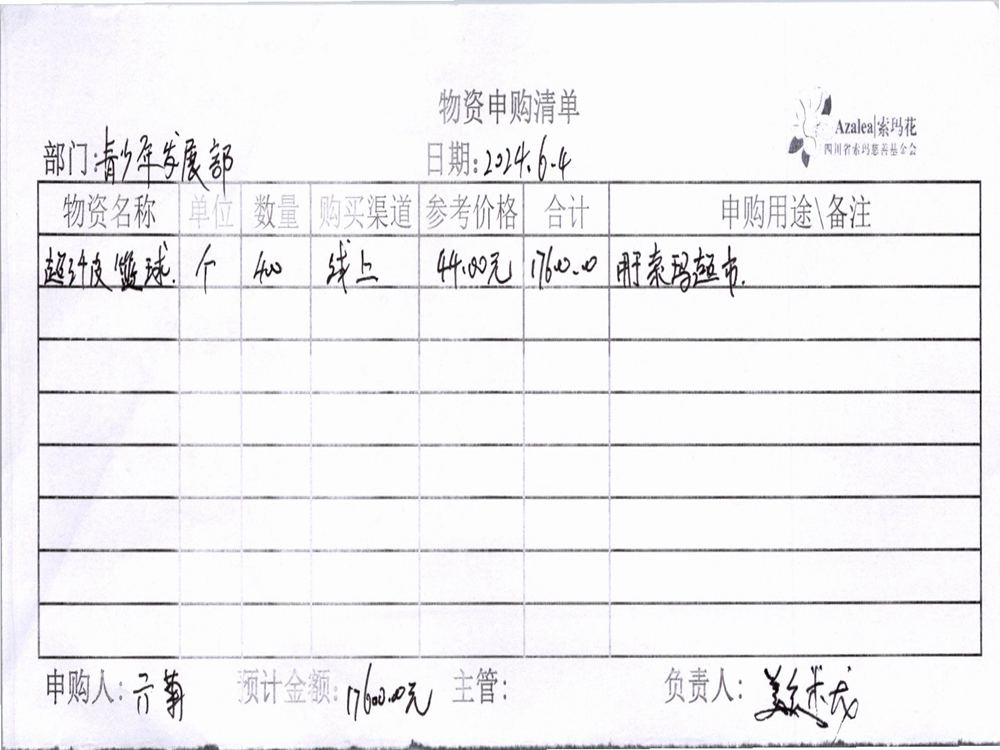 物资申购清单
Azalea|索玛花
四川省索玛慈善基金会
部门:青少年发展部 日期:2024.6.4
物资名称 单位 数量 购买渠道 参考价格 合计 申购用途\备注
超纤皮篮球. 个 400 线上 44.00元 17600.00 用于索玛超市.
申购人: 预计金额:17600.00元 主管: 负责人: